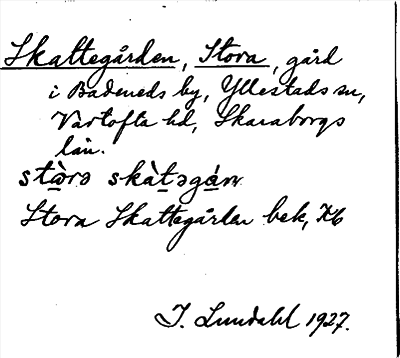 Skattegården, Stora, gård
i Badeneds by, Yllestads sn,
Vartofta hd, Skaraborgs
län.
stò̱rə skàt̲əgá̲ɳ
Stora Skattegården bek,
I. Lundahl 1927.